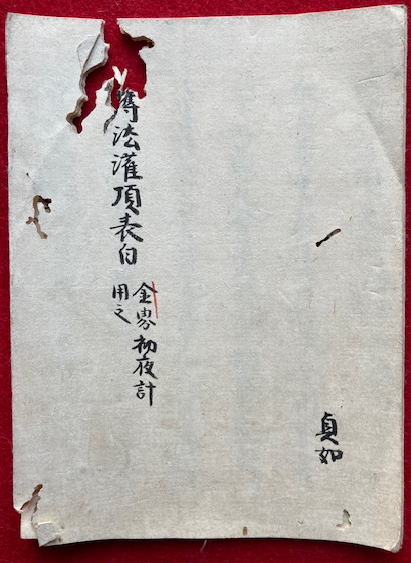 傳法灌頂表白
金界初夜計
用之
貞如